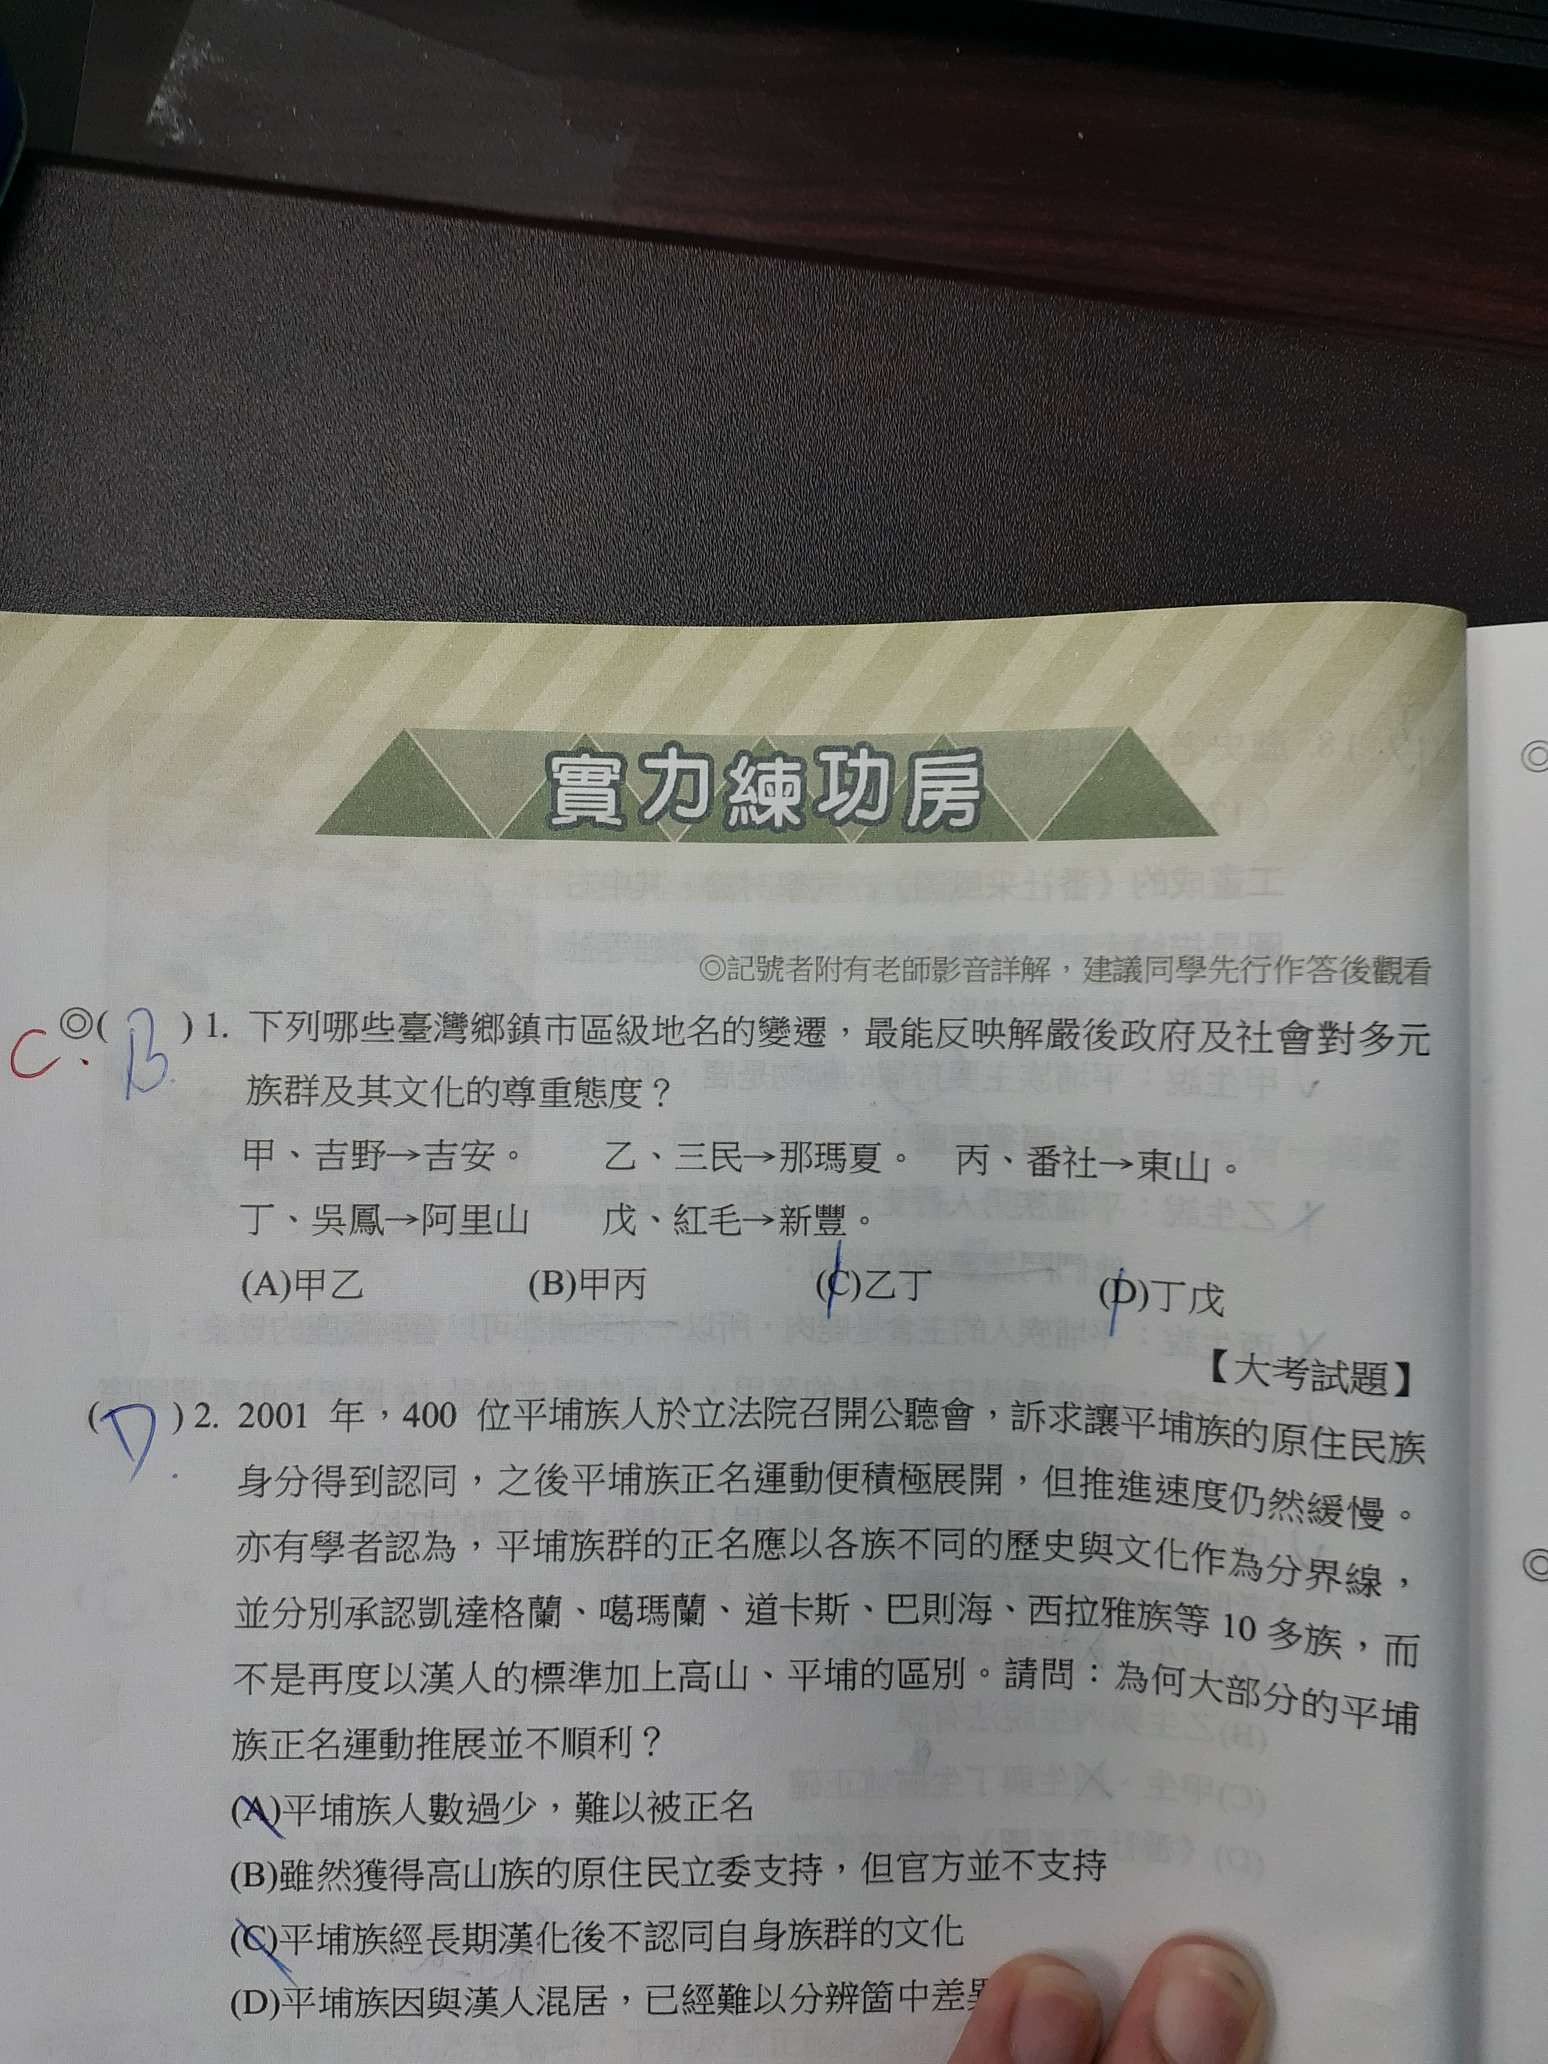 實力練功房
◎記號者附有老師影音詳解，建議同學先行作答後觀看
C. ◎( B. ) 1. 下列哪些臺灣鄉鎮市區級地名的變遷，最能反映解嚴後政府及社會對多元
族群及其文化的尊重態度？
甲、吉野→吉安。 乙、三民→那瑪夏。 丙、番社→東山。
丁、吳鳳→阿里山 戊、紅毛→新豐。
(A)甲乙 (B)甲丙 (C)乙丁 (D)丁戊
【大考試題】
( D. ) 2. 2001 年，400 位平埔族人於立法院召開公聽會，訴求讓平埔族的原住民族
身分得到認同，之後平埔族正名運動便積極展開，但推進速度仍然緩慢。
亦有學者認為，平埔族群的正名應以各族不同的歷史與文化作為分界線，
並分別承認凱達格蘭、噶瑪蘭、道卡斯、巴則海、西拉雅族等 10 多族，而
不是再度以漢人的標準加上高山、平埔的區別。請問：為何大部分的平埔
族正名運動推展並不順利？
(A)平埔族人數過少，難以被正名
(B)雖然獲得高山族的原住民立委支持，但官方並不支持
(C)平埔族經長期漢化後不認同自身族群的文化
(D)平埔族因與漢人混居，已經難以分辨箇中差異